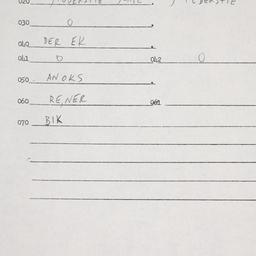 020
030 0
040 DER EK
041 0 042 0
050 ANOKS
060 RE,NER 061
070 BIK